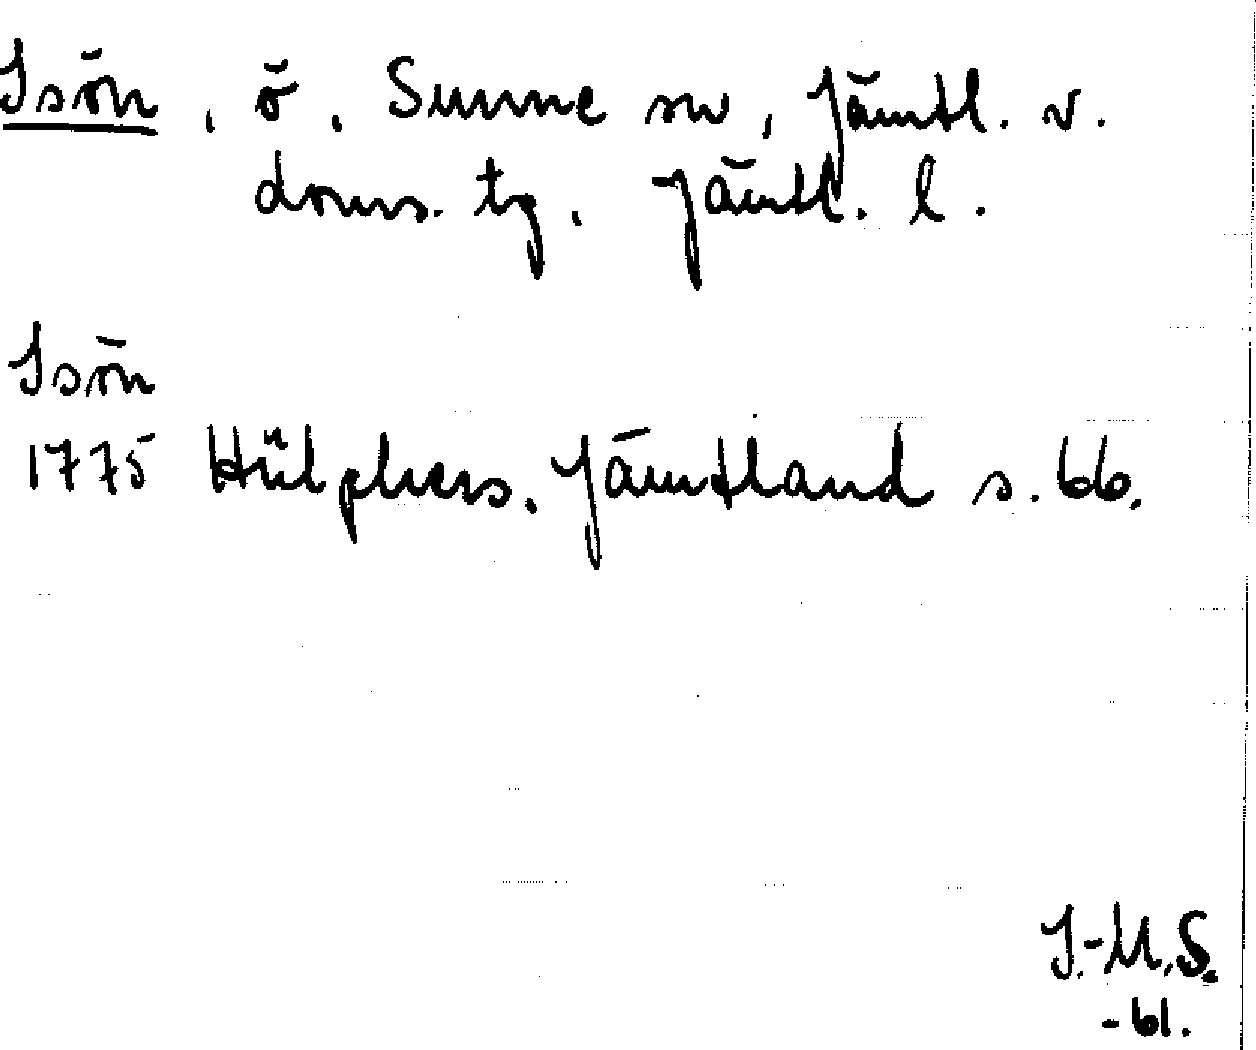 Isön, ö, Sunne sn, Jämtl. v.
doms. tg, Jämtl. l.
Isön
1775 Hülphers. Jämtland s. 66.
I.-M.S.
-61.